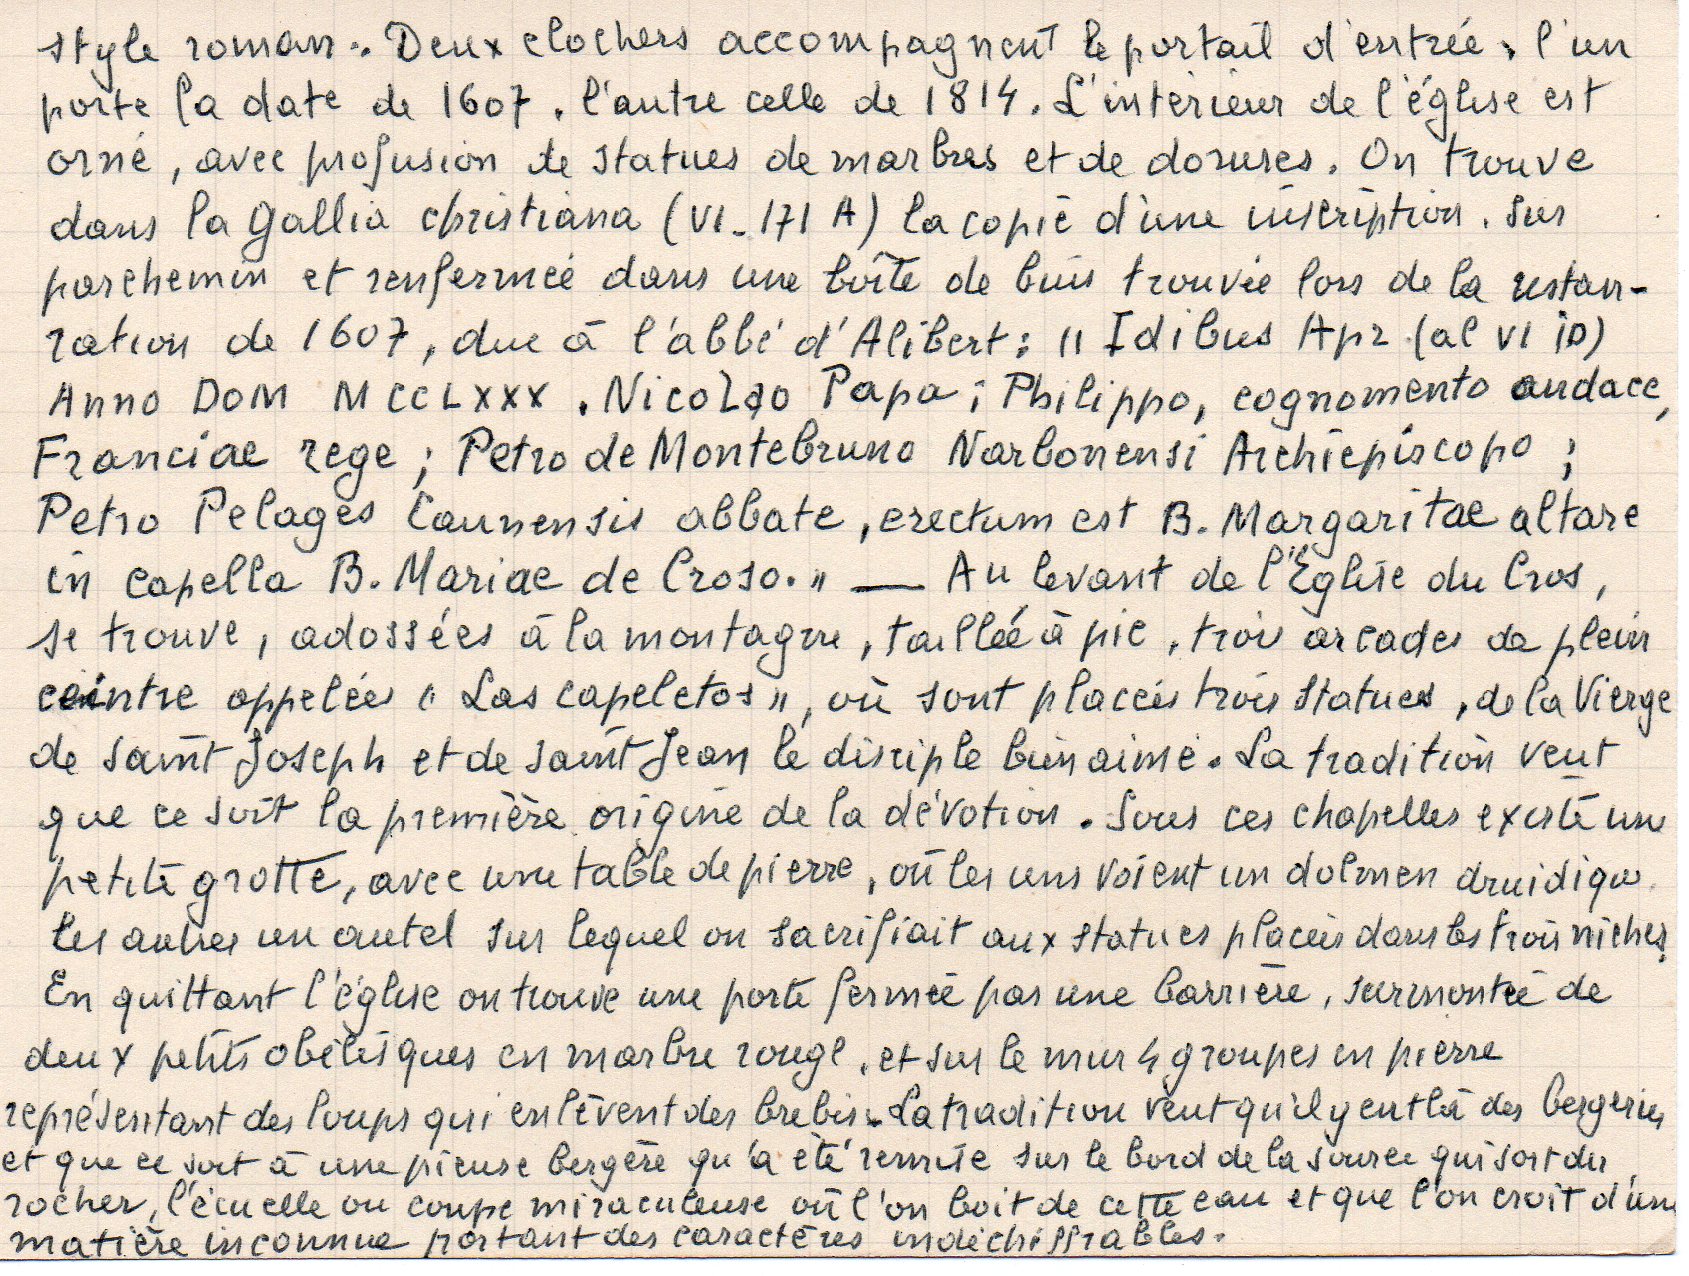 style roman.. Deux clochers accompagnent le portail d'entrée, l'un
porte la date de 1607. l'autre celle de 1814. L'intérieur de l'église est
orné, avec profusion de statues de marbres et de dorures. On trouve
dans la Gallia christiana (VI. 171 A) la copie d'une inscription. sur
parchemin et renfermée dans une boîte de buis trouvée lors de la restau-
ration de 1607, due à l'abbé d'Alibert: " Idibus Apr. (al VI ID)
Anno DOM MCCLXXX. Nicolao Papa; Philippo, cognomento audace,
Franciae rege; Petro de Montebruno Narbonensi Archiepiscopo;
Petro Pelages Caunensis abbate, erectum est B. Margaritae altare
in capella B. Mariae de Croso." — Au levant de l'Eglise du Cros,
se trouve, adossées à la montagne, taillée à pic, trois arcades de plein
ceintre appelées " Las capeletos ", où sont placées trois statues, de la Vierge
de saint Joseph et de saint Jean le disciple bien aimé. La tradition veut
que ce soit la première origine de la dévotion. Sous ces chapelles existe une
petite grotte, avec une table de pierre, où les uns voient un dolmen druidique.
les autres un autel sur lequel on sacrifiait aux statues placées dans les trois niches.
En quittant l'église on trouve une porte fermée par une barrière, surmontée de
deux petits obélisques en marbre rouge. et sur le mur 4 groupes en pierre
représentant des loups qui enlèvent des brebis. La tradition veut qu'il y eut là des bergeries
et que ce soit à une pieuse bergère qu'a été remise sur le bord de la source qui sort du
rocher, l'écuelle ou coupe miraculeuse où l'on boit de cette eau et que l'on croit d'une
matière inconnue portant des caractères indéchiffrables.